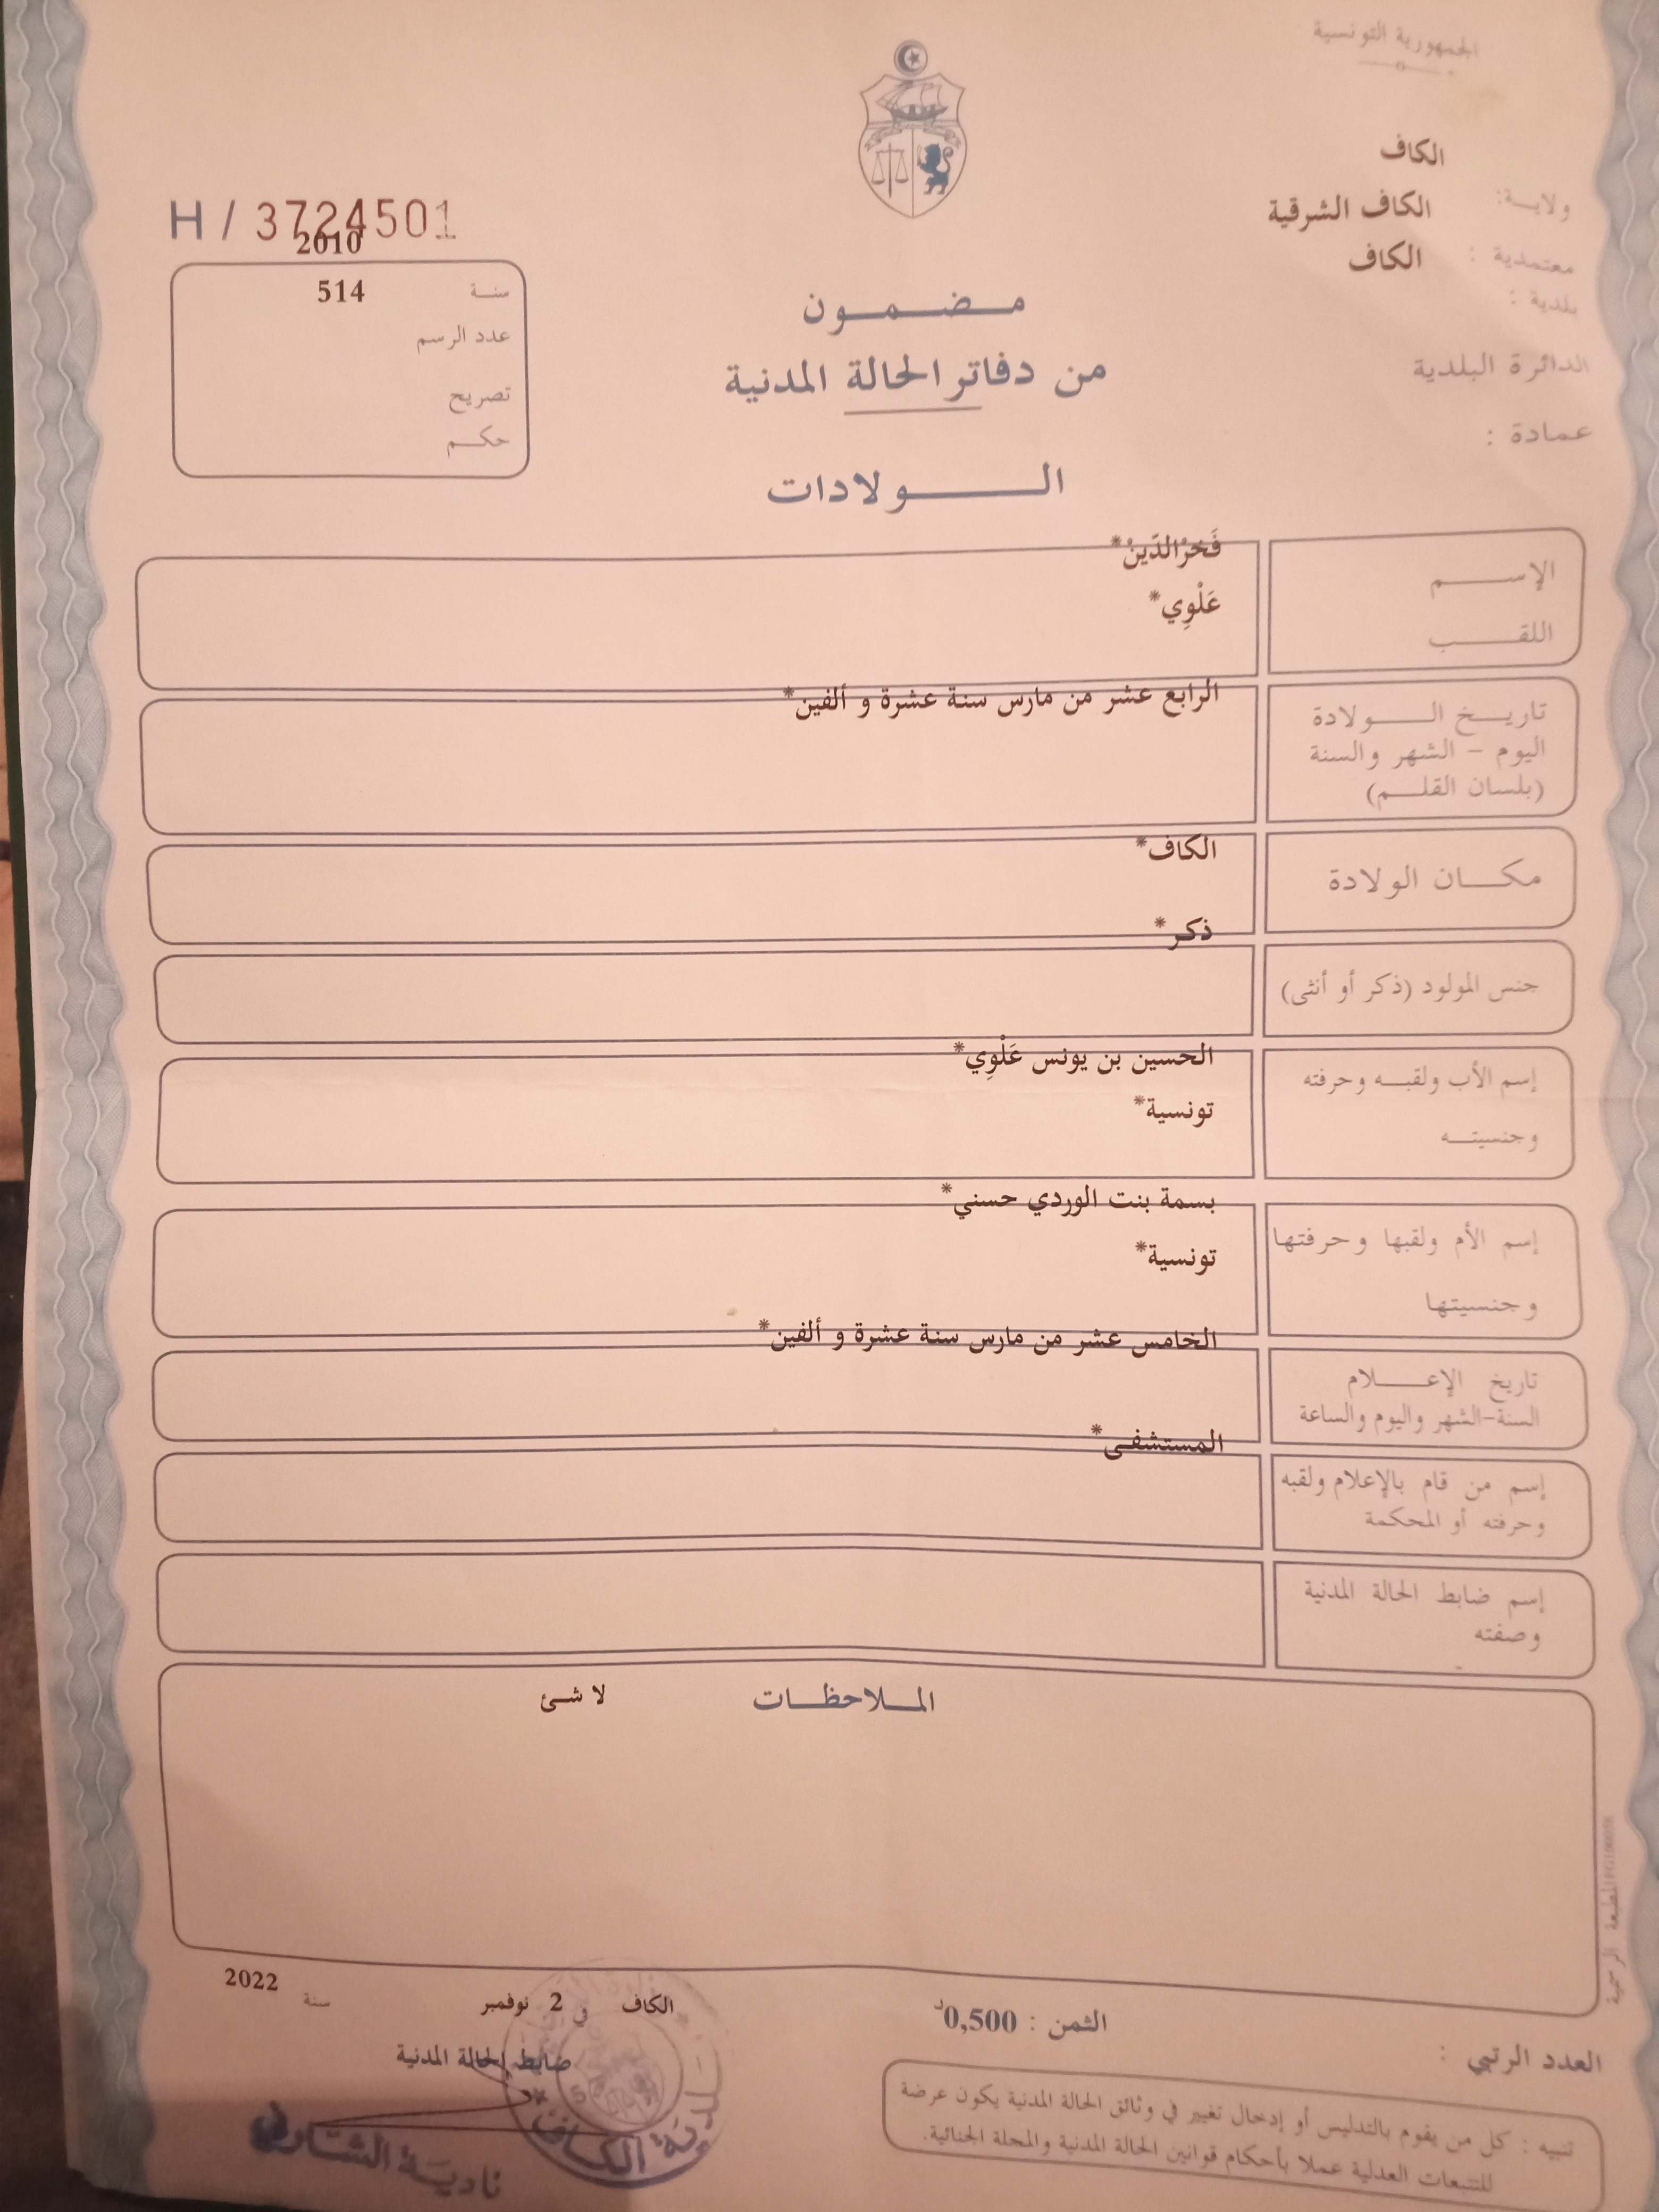 الجمهورية التونسية
الكاف
ولاية:
الكاف الشرقية
معتمدية :
الكاف
بلدية :
الدائرة البلدية
عمادة :
H / 3724501
2010
سنة
514
عدد الرسم
تصريح
حكم
مضمون
من دفاتر الحالة المدنية
الولادات
الإسم
فَخرْالدّينْ*
اللقب
عَلْوِي*
تاريخ الولادة
اليوم - الشهر والسنة
(بلسان القلم)
الرابع عشر من مارس سنة عشرة و ألفين*
مكان الولادة
الكاف*
جنس المولود (ذكر أو أنثى)
ذكر*
إسم الأب ولقبه وحرفته
وجنسيته
الحسين بن يونس عَلْوِي*
تونسية*
إسم الأم ولقبها وحرفتها
وجنسيتها
بسمة بنت الوردي حسني*
تونسية*
تاريخ الإعلام
السنة-الشهر واليوم والساعة
الخامس عشر من مارس سنة عشرة و ألفين*
إسم من قام بالإعلام ولقبه
وحرفته أو المحكمة
المستشفى*
إسم ضابط الحالة المدنية
وصفته
الملاحظات
لا شئ
المطبعة الرسمية
الكاف في 2 نوفمبر سنة 2022
ضابط الحالة المدنية
بلدية الكاف
نادية
الثمن : 0,500د
العدد الرتبي :
تنبيه : كل من يقوم بالتدليس أو إدخال تغيير في وثائق الحالة المدنية يكون عرضة
للتتبعات العدلية عملا بأحكام قوانين الحالة المدنية والمجلة الجنائية.